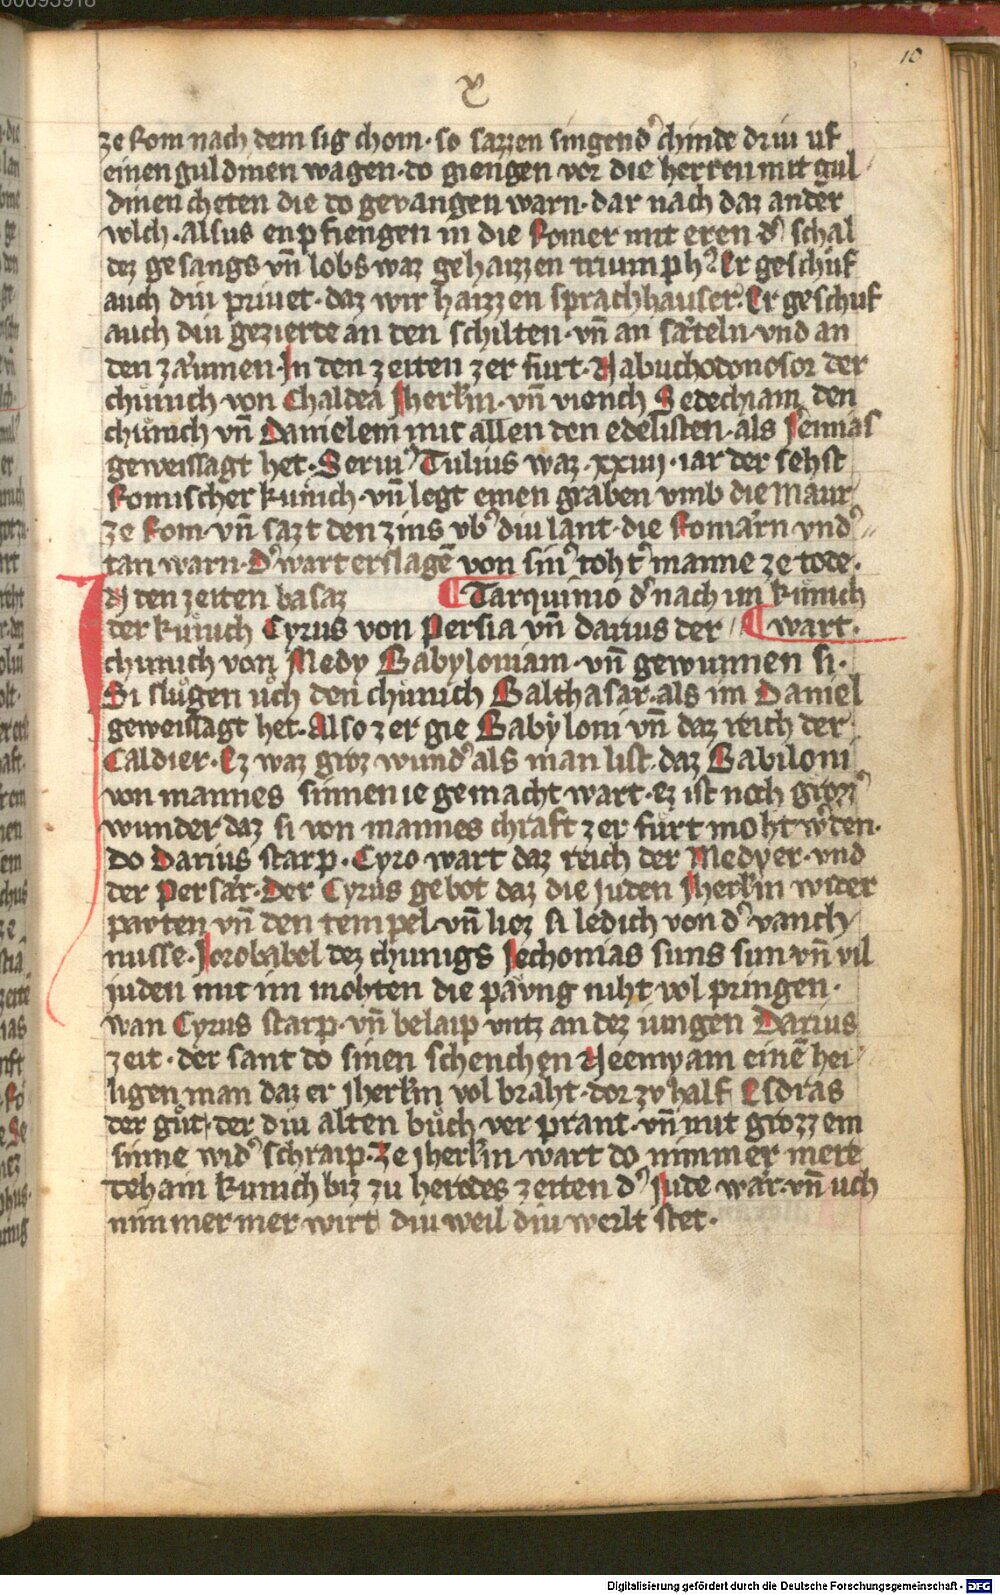 00093918
10
X
ze Rom nach dem sig chom · so sazzen singend᾽ chinde driu uf
einen guldinen wagen · do giengen vor die herren mit gul
dinen cheten die do gevangen warn · dar nach daz ander
volch · alsus enpfiengen in die Romer mit eren d᾽ schal
dez gesangs vn̄ lobs waz gehaizzen triumph᾽ Er geschuf
auch diu privet · daz wir haizzen sprachhauser · Er geschuf
auch diu gezierde an den schilten · vn̄ an sateln · vnd an
den zaumen · In den zeiten zerfurt · Nabuchodonosor der
chunich von Chaldea Jherlm̄ · vn̄ viench Sedechiam den
chunich vn̄ Danielem mit allen den edelisten · als Jeremias
geweissagt het · Serui᾽ Tulius waz · xxiiii · iar der sehst
Romischer kunich · vn̄ legt einen graben vmb die Maur
ze Rom · vn̄ sazt den zins vb᾽ diu lant · die Romarn vnd᾽
tan warn · D᾽ wart erslagē von sin᾽ toht᾽ manne ze tode ·
In den zeiten basaz ¶ Tarquinio d᾽ nach im kunich
der kunich Cyrus von Persia vn̄ darius der ¶ wart ·
chunich von Medy Babyloniam · vn̄ gewunnen si ·
Si slugen uch den chunich Balthasar · als im Daniel
geweissagt het · Also zergie Babyloni vn̄ daz reich der
Caldier · Ez waz groz wund᾽ als man list · daz Babiloni
von mannes sinnen ie gemacht wart · ez ist noch grozz᾽
wunder daz si von mannes chraft zerfurt moht w᾽den ·
do Darius starp · Cyro wart daz reich der Medyer · vnd
der Persar · Der Cyrus gebot daz die juden Jherlm̄ wider
pawten vn̄ den tempel · vn̄ liez si ledich von d᾽ vanch
nusse · Jorobabel dez chunigs Jechonias suns sun vn̄ vil
juden mit im mohten die pawng niht vol pringen ·
wan Cyrus starp · vn̄ belaip vntz an dez iungen Darius
zeit · der sant do sinen schenchen Neemyam einē hei
ligen man daz er jherlm̄ vol braht · dor zv half Esdras
der gut · der diu alten buch verprant · vn̄ mit grozzem
sinne wid᾽ schraip · Ze jherlm̄ wart do nimmer mere
dehain kunich biz zu herodes zeiten d᾽ Jude war · vn̄ uch
nimmer mer wirt diu weil diu werlt stet ·
Digitalisierung gefördert durch die Deutsche Forschungsgemeinschaft - DFG